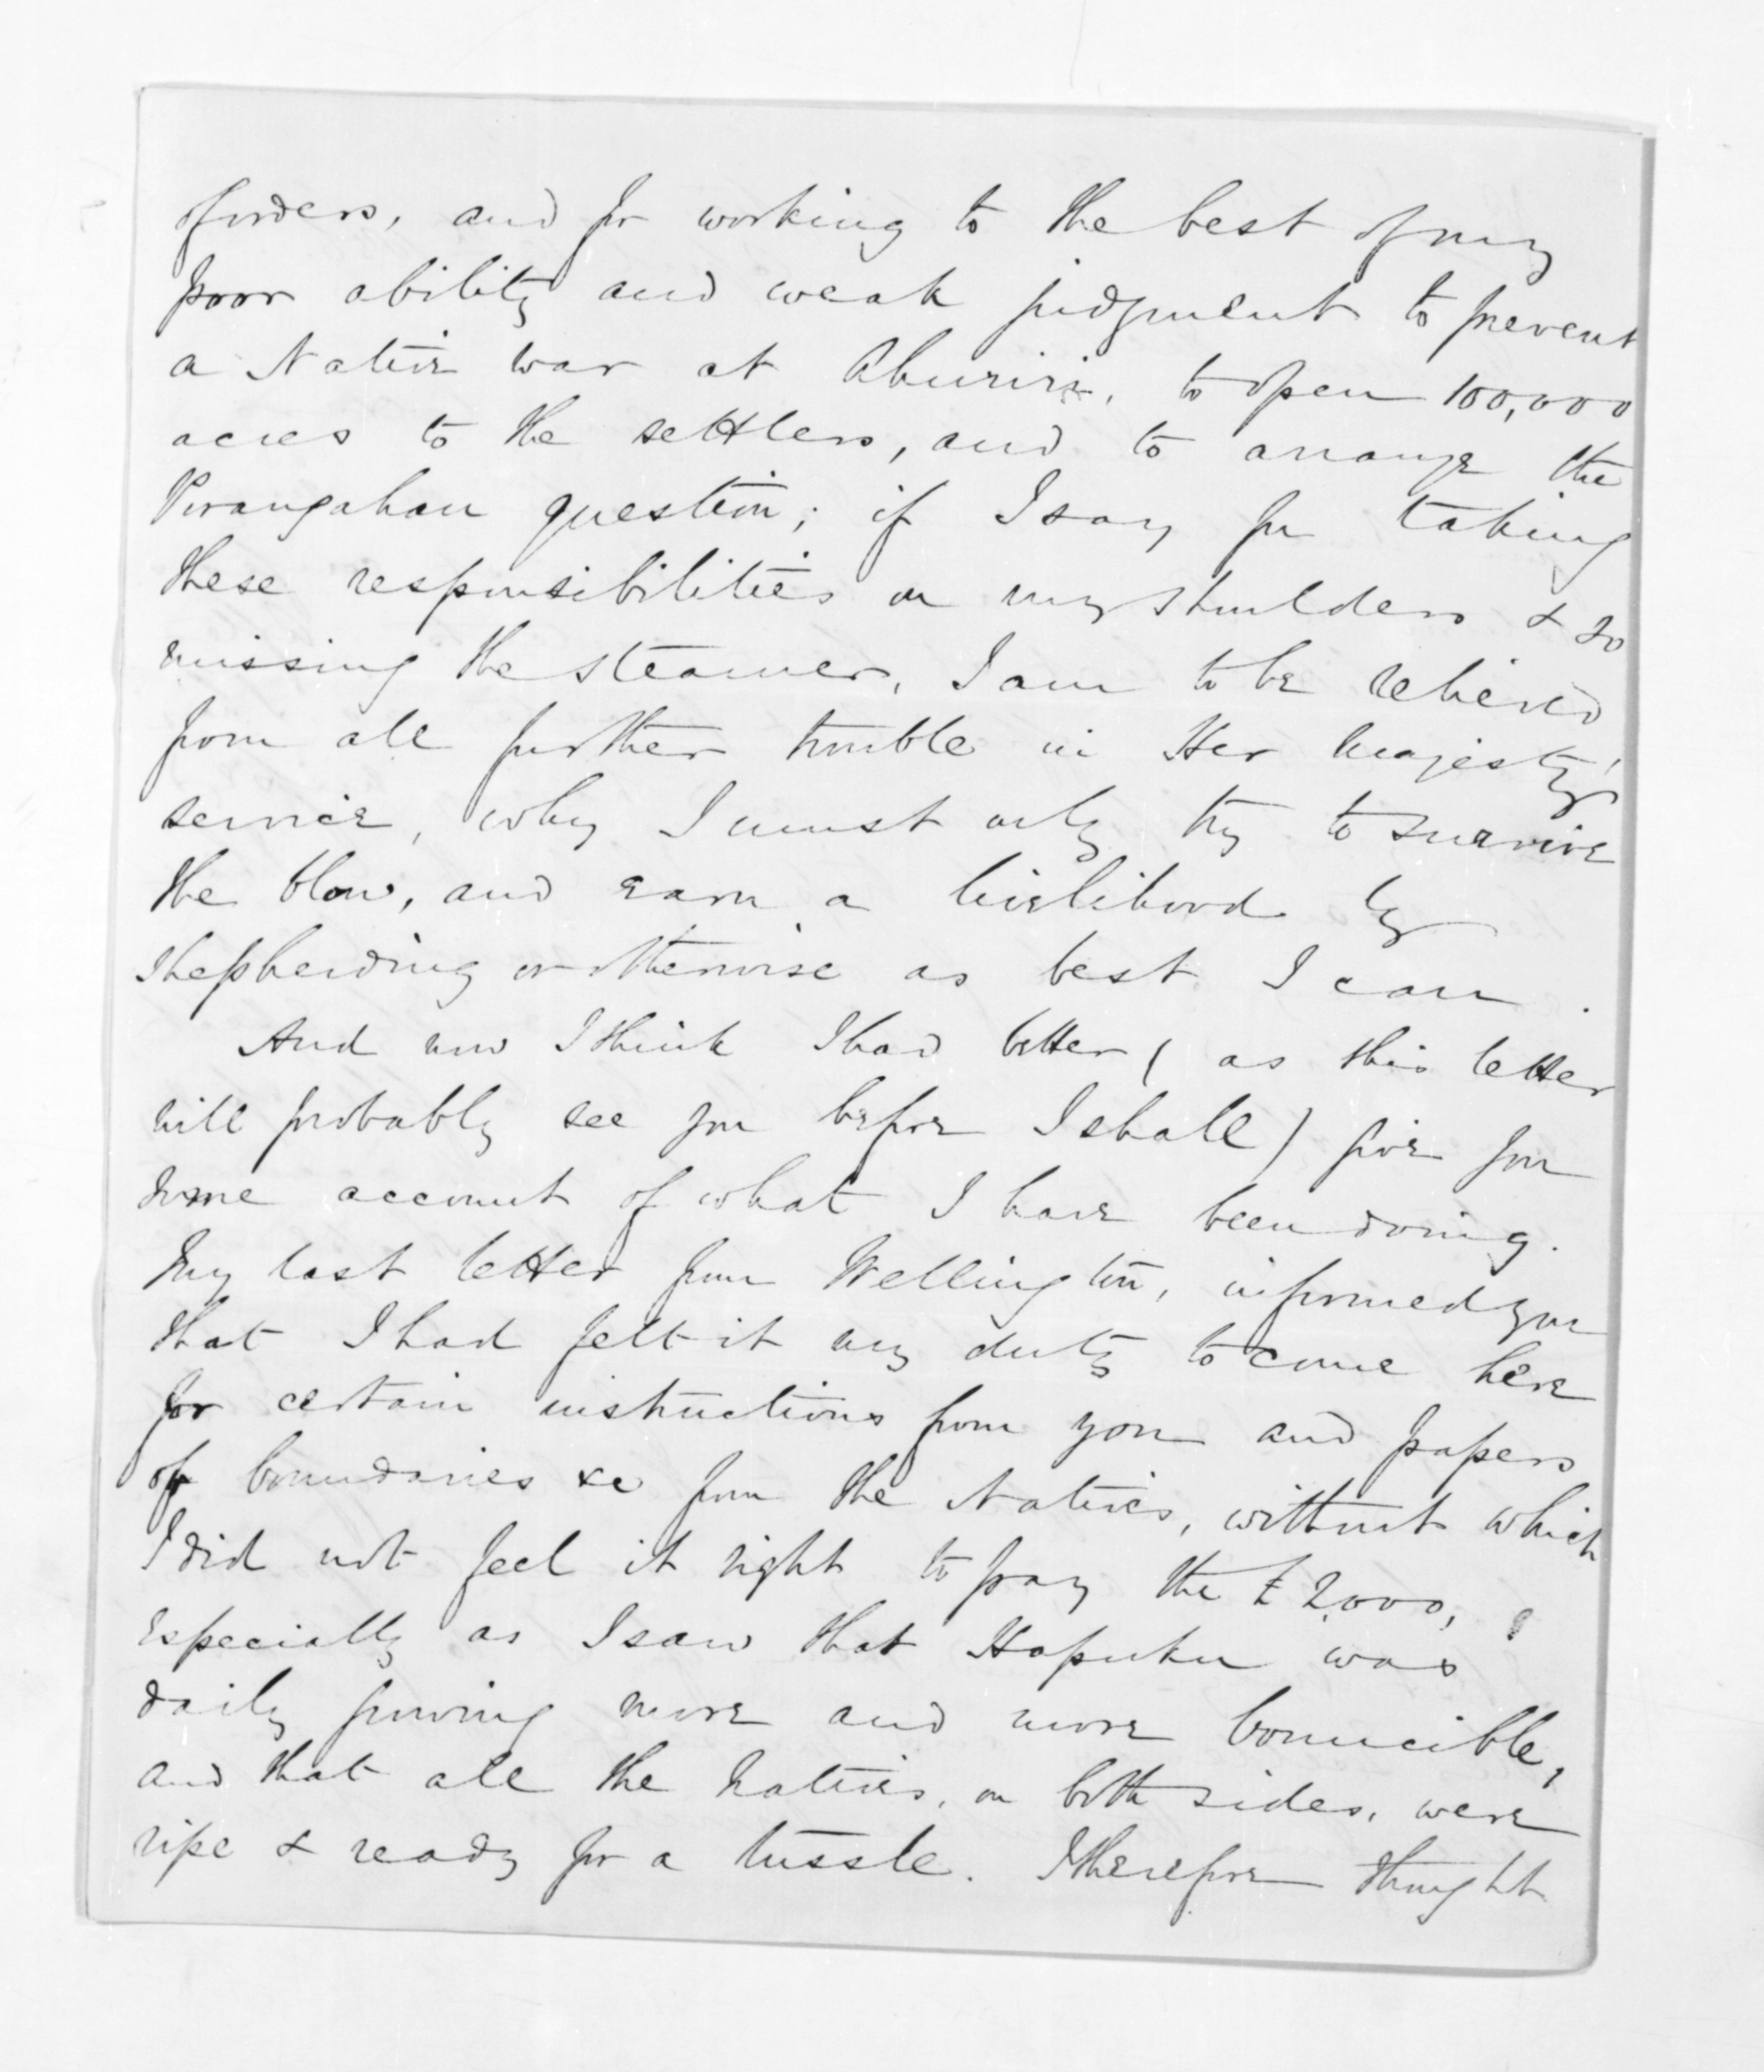 of orders, and for working to the best of my
poor ability and weak judgment to prevent
a Native war at Ahuriri, to open 100,000
acres to the settlers, and to arrange the
Porangahau question; if I say for taking
these responsibilities on my shoulders & so
missing the steamer, I am to be relieved
from all further trouble in Her Majesty's
service, why I must only try to survive
the blow, and earn a livelihood by
shepherding or otherwise as best I can.
And now I think I had better (as this letter
will probably see you before I shall) give you
some account of what I have been doing.
My last letter from Wellington, informed you
that I had felt it my duty to come here
for certain instructions from you and papers
of boundaries &c from the Natives, without which
I did not feel it right to pay the £2,000,
especially as I saw that Hapuku was
daily growing more and more
and that all the Natives, on both sides, were
ripe & ready for a tussle. I therefore thought